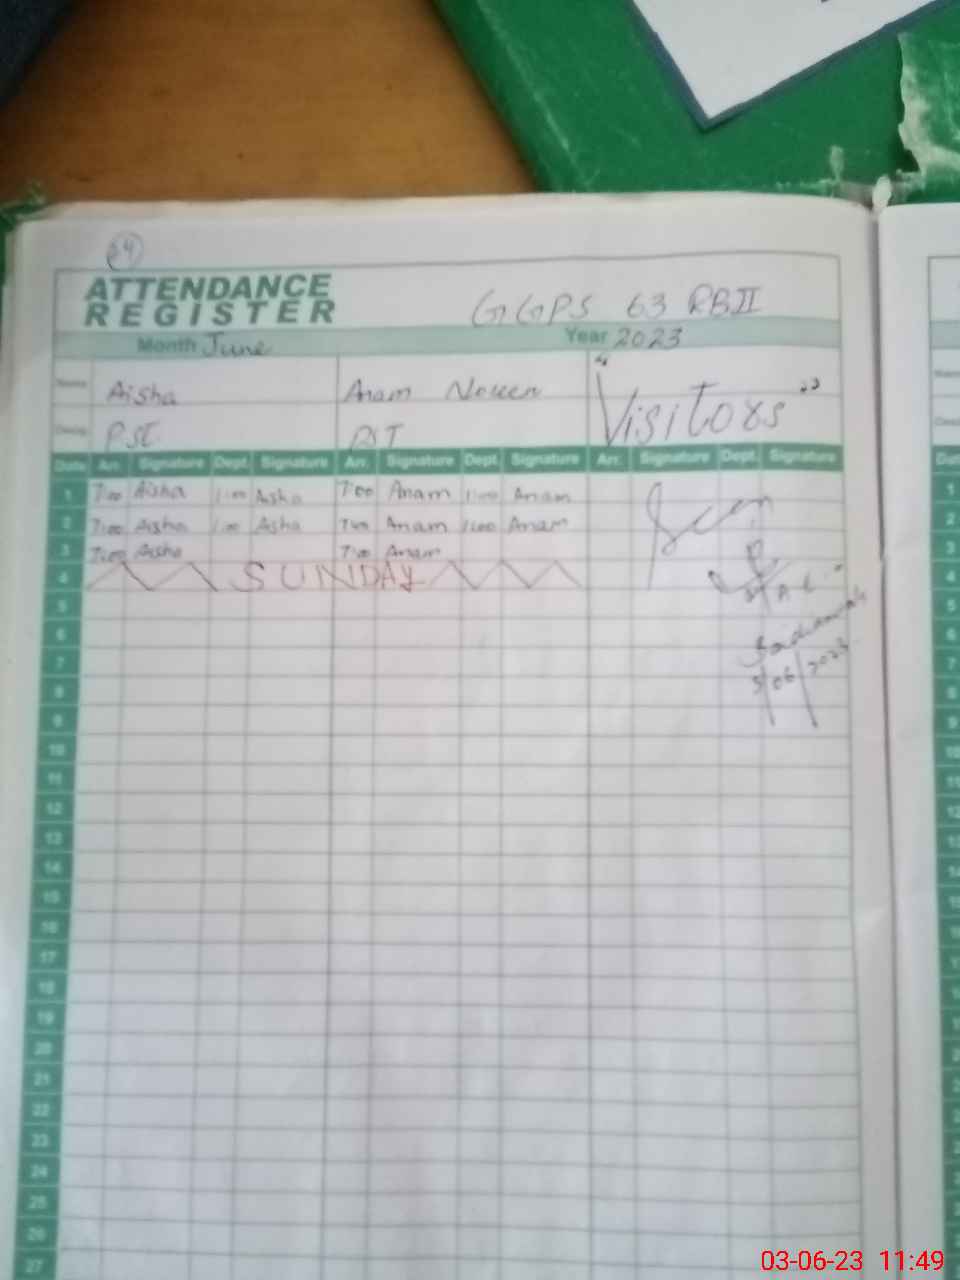 24
ATTENDANCE
REGISTER
GGPS 63 RBII
Month June Year 2023
Name Aisha Anam Noreen "Visitors"
Desig PST PST
Date Arr. Signature Dept. Signature Arr. Signature Dept. Signature Arr. Signature Dept. Signature
1 7:00 Aisha 1:00 Aisha 7:00 Anam 1:00 Anam Seen
2 7:00 Aisha 1:00 Aisha 7:00 Anam 1:00 Anam
3 7:00 Aisha 7:00 Anam
4 SUNDAY
5
6
7
3/06/2023
8
9
10
11
12
13
14
15
16
17
18
19
20
21
22
23
24
25
26
27
03-06-23 11:49